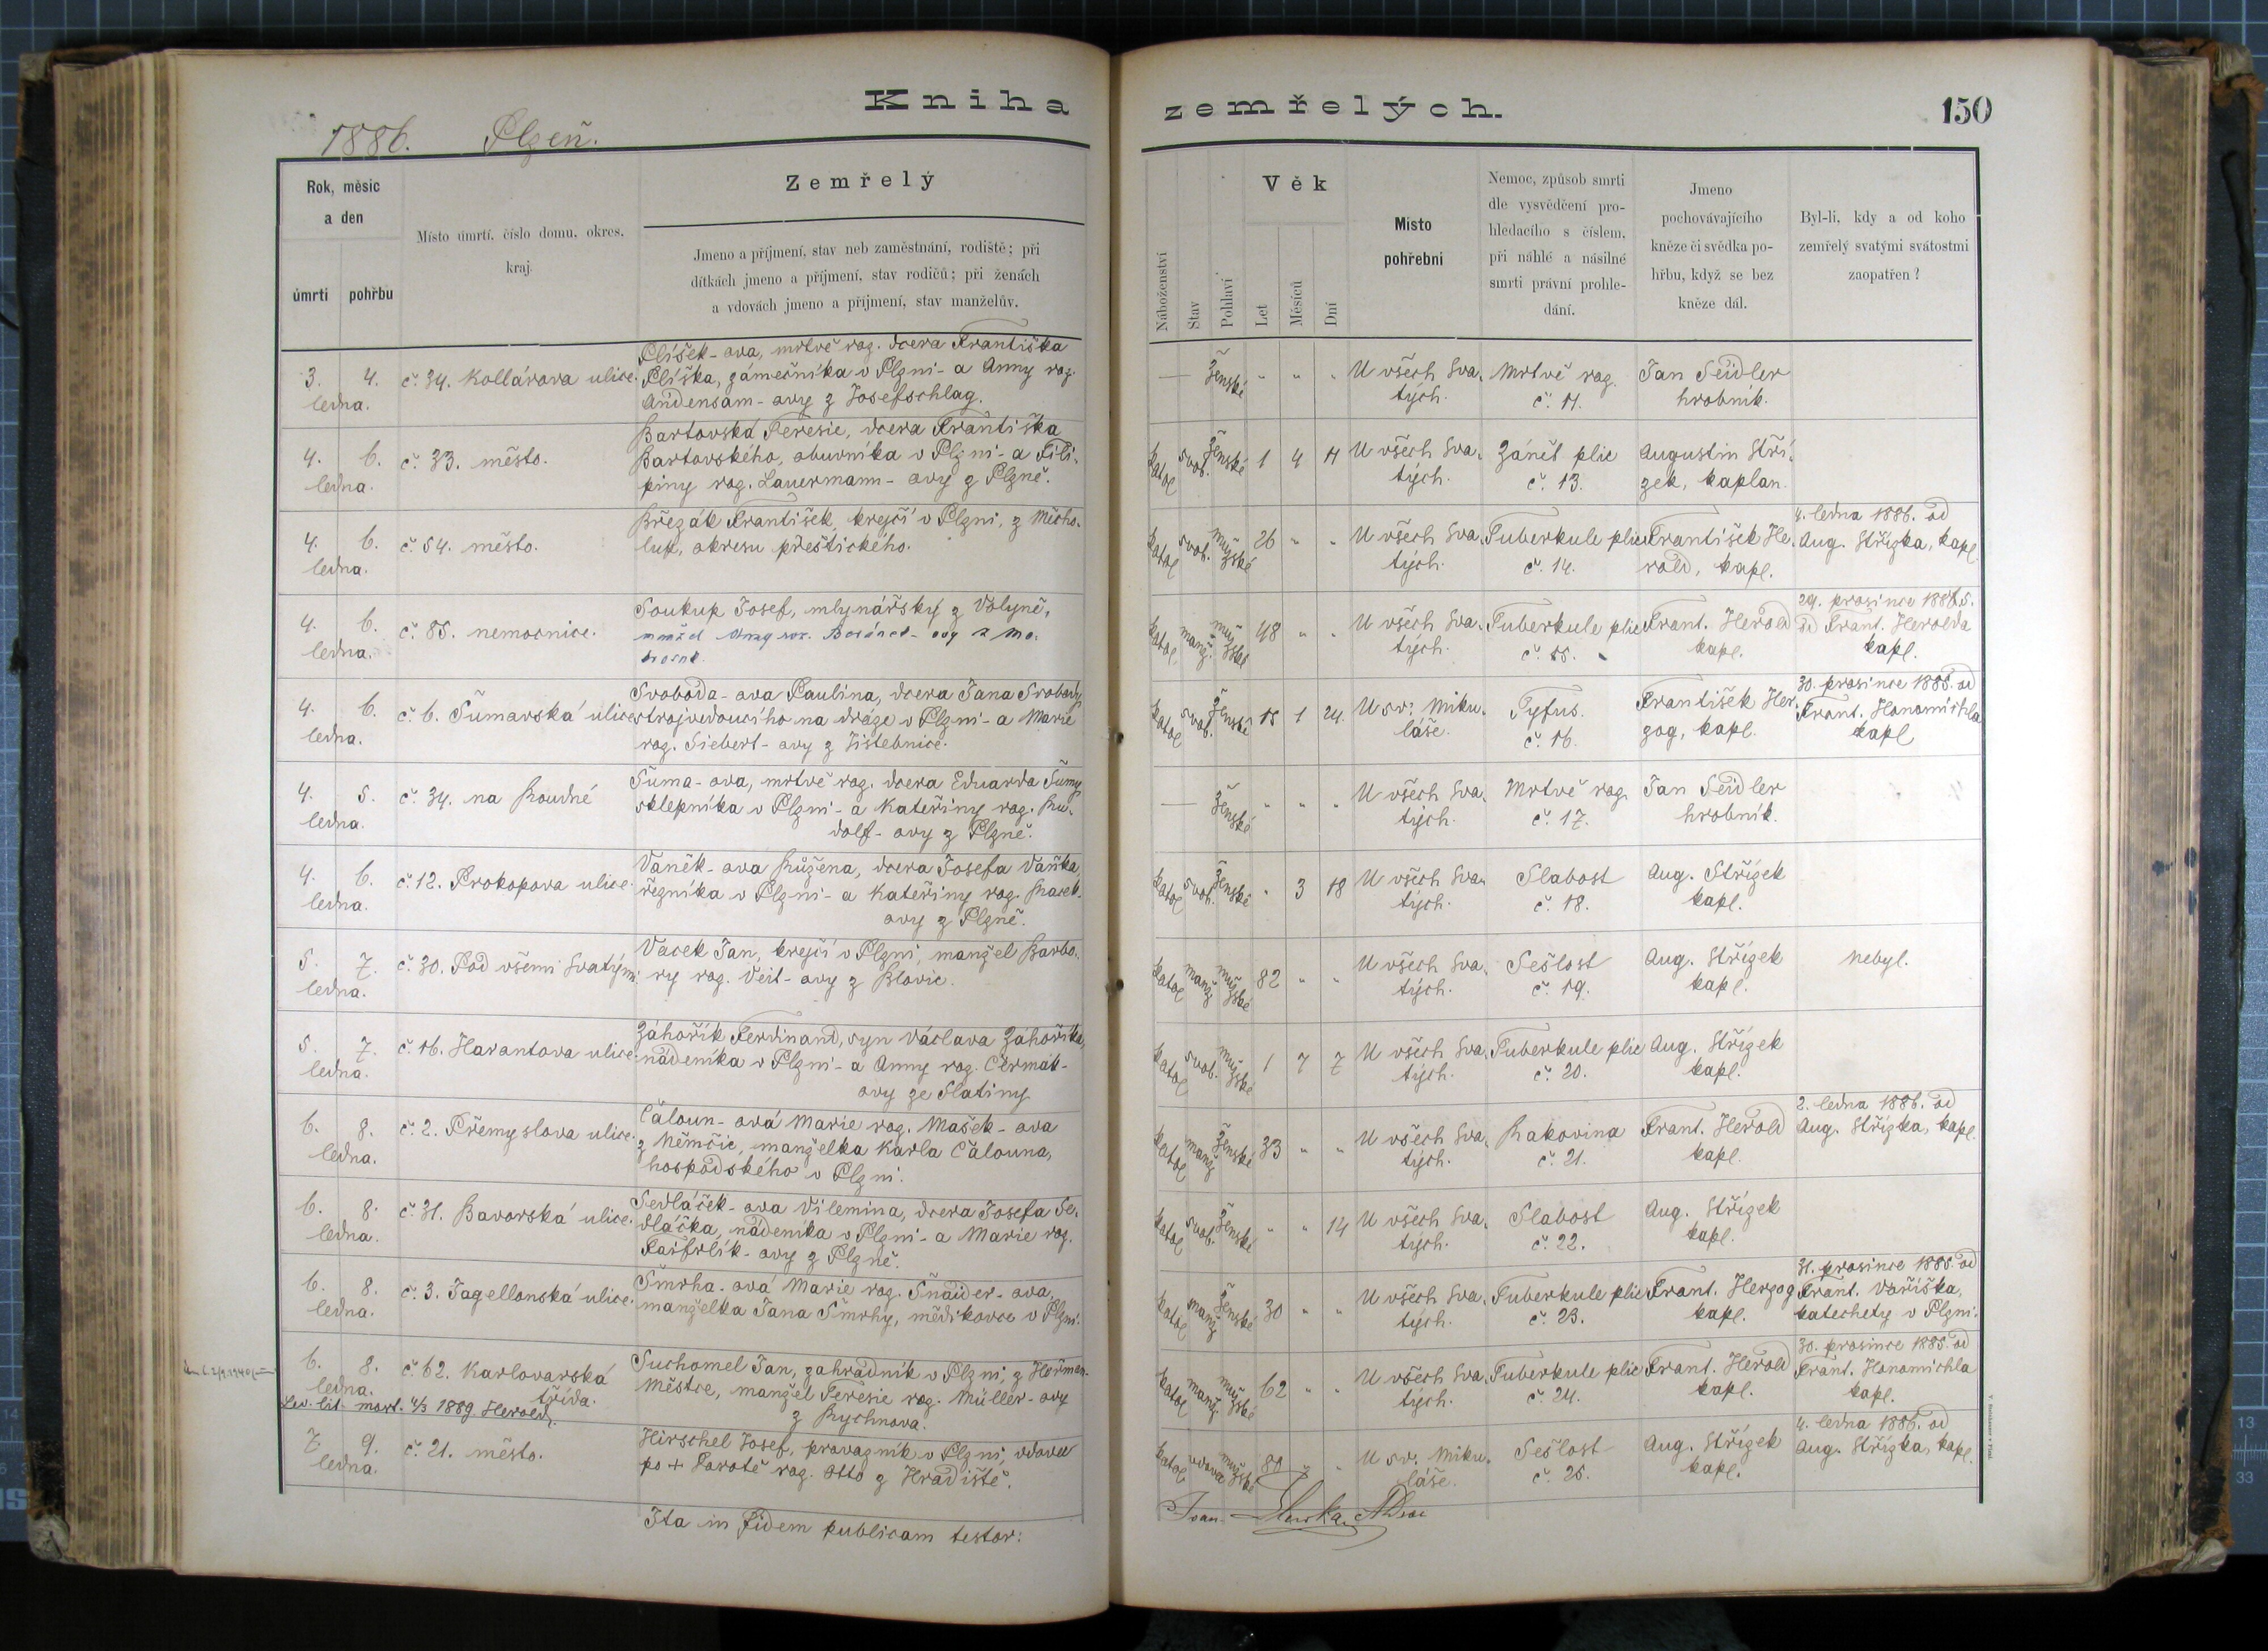 Kniha
zemřelých.
150
1886. Plzeň.
Rok, měsíc
a den
úmrtí
pohřbu
Místo úmrtí, číslo domu, okres,
kraj.
Zemřelý
Jmeno a příjmení, stav neb zaměstnání, rodiště; při
dítkách jmeno a příjmení, stav rodičů; při ženách
a vdovách jmeno a příjmení, stav manželův.
Náboženství
Stav
Pohlaví
Věk
Let
Měsíců
Dní
Místo
pohřební
Nemoc, způsob smrti
dle vysvědčení pro-
hledacího s číslem,
při náhlé a násilné
smrti právní prohle-
dání.
Jmeno
pochovávajícího
kněze či svědka po-
hřbu, když se bez
kněze dál.
Byl-li, kdy a od koho
zemřelý svatými svátostmi
zaopatřen?
3. 4.
ledna.
č. 34. Kollárova ulice.
Plíšek-ova, mrtvě roz. dcera Františka
Plíška, zámečníka v Plzni- a Anny roz.
Andensam-ovy z Josefschlag.
— ženské " " "
U všech Sva-
tých.
Mrtvě roz.
č. 11.
Jan Seidler
hrobník.
4. 6.
ledna.
č. 33. město.
Bartovská Teresie, dcera Františka
Bartovského, obuvníka v Plzni- a Fili-
piny roz. Lauermann-ovy z Plzně.
katol svob. ženské 1 4 11
U všech Sva-
tých.
Zánět plic
č. 13.
Augustin Stří-
zek, kaplan.
4. 6.
ledna.
č. 54. město.
Březák František, krejčí v Plzni, z Měcho-
lup, okresu přeštického.
katol svob. mužské 26 " "
U všech Sva-
tých.
Tuberkule plic
č. 14.
František He-
rold, kapl.
4. ledna 1886. od
Aug. Střízka, kapl.
4. 6.
ledna.
č. 85. nemocnice.
Soukup Josef, mlynářský z Volyně,
manžel Anny roz.
katol manž. mužské 48 " "
U všech Sva-
tých.
Tuberkule plic
č. 15.
Frant. Herold
kapl.
29. prosince 1885.
od Frant. Herolda
kapl.
4. 6.
ledna.
č. 6. Šumavská ulice
Svoboda-ova Paulina, dcera Jana Svobody
strojvedoucího na dráze v Plzni- a Marie
roz. Siebert-ovy z Jistebnice.
katol svob. ženské 15 1 24.
U sv. Miku-
láše.
Tyfus.
č. 16.
František Her-
zog, kapl.
30. prosince 1885. od
Frant. Honomichla
kapl
4. 5.
ledna.
č. 34. na Roudné
Šuma-ova, mrtvě roz. dcera Eduarda Šumy
sklepníka v Plzni- a Kateřiny roz. Ru-
dolf-ovy z Plzně.
— ženské " " "
U všech Sva-
tých.
Mrtvě roz.
č. 17.
Jan Seidler
hrobník.
4. 6.
ledna.
č. 12. Prokopova ulice.
Vaněk-ova Růžena, dcera Josefa Vaňka,
řezníka v Plzni- a Kateřiny roz. Marek-
ovy z Plzně.
katol svob. ženské " 3 18
U všech Sva-
tých.
Slabost
č. 18.
Aug. Střízek
kapl.
5. 7.
ledna.
č. 30. Pod všemi Svatými
Vacek Jan, krejčí v Plzni, manžel Barbo-
ry roz. Veit-ovy z Blovic.
katol manž mužské 82 " "
U všech Sva-
tých.
Sešlost
č. 19.
Aug. Střízek
kapl.
nebyl.
5. 7.
ledna.
č. 16. Harantova ulice.
Záhořík Ferdinand, syn Václava Záhoříka,
nádeníka v Plzni- a Anny roz. Čermák-
ovy ze Slatiny
katol svob. mužské 1 7 7
U všech Sva-
tých.
Tuberkule plic
č. 20.
Aug. Střízek
kapl.
6. 8.
ledna.
č. 2. Přemyslova ulice.
Čaloun-ová Marie roz. Mašek-ova
z Němčic, manželka Karla Čalouna,
hospodského v Plzni.
katol manž ženské 33 " "
U všech Sva-
tých.
Rakovina
č. 21.
Frant. Herold
kapl.
2. ledna 1886. od
Aug. Střízka, kapl.
6. 8.
ledna.
č. 31. Bavorská ulice.
Sedláček-ova Vilemina, dcera Josefa Se-
dláčka, nádeníka v Plzni- a Marie roz.
Paifrlík-ovy z Plzně.
katol svob. ženské " " 14
U všech Sva-
tých.
Slabost
č. 22.
Aug. Střízek
kapl.
6. 8.
ledna.
č. 3. Jagellonská ulice.
Šmrha-ová Marie roz. Šnaider-ova,
manželka Jana Šmrhy, mědikovce v Plzni.
katol manž ženské 30 " "
U všech Sva-
tých.
Tuberkule plic
č. 23.
Frant. Herzog
kapl.
31. prosince 1885. od
Frant. Vaříška,
katechety v Plzni.
6. 8.
ledna.
č. 62. Karlovarská
třída.
lit. mort. 4/3 1889 Herold.
Suchomel Jan, zahradník v Plzni, z Heřman-
Městce, manžel Teresie roz. Müller-ovy
z Rychnova.
katol manž. mužské 62 " "
U všech Sva-
tých.
Tuberkule plic
č. 24.
Frant. Herold
kapl.
30. prosince 1885. od
Frant. Honomichla
kapl.
7. 9.
ledna.
č. 21. město.
Hirschel Josef, provazník v Plzni, vdovec
po + Barotě roz. Otto z Hradiště.
katol vdovec mužské 80 " "
U sv. Miku-
láše.
Sešlost
č. 25.
Aug. Střízek
kapl.
4. ledna 1886. od
Aug. Střízka, kapl.
Ita in fidem publicam testor:
Joan.